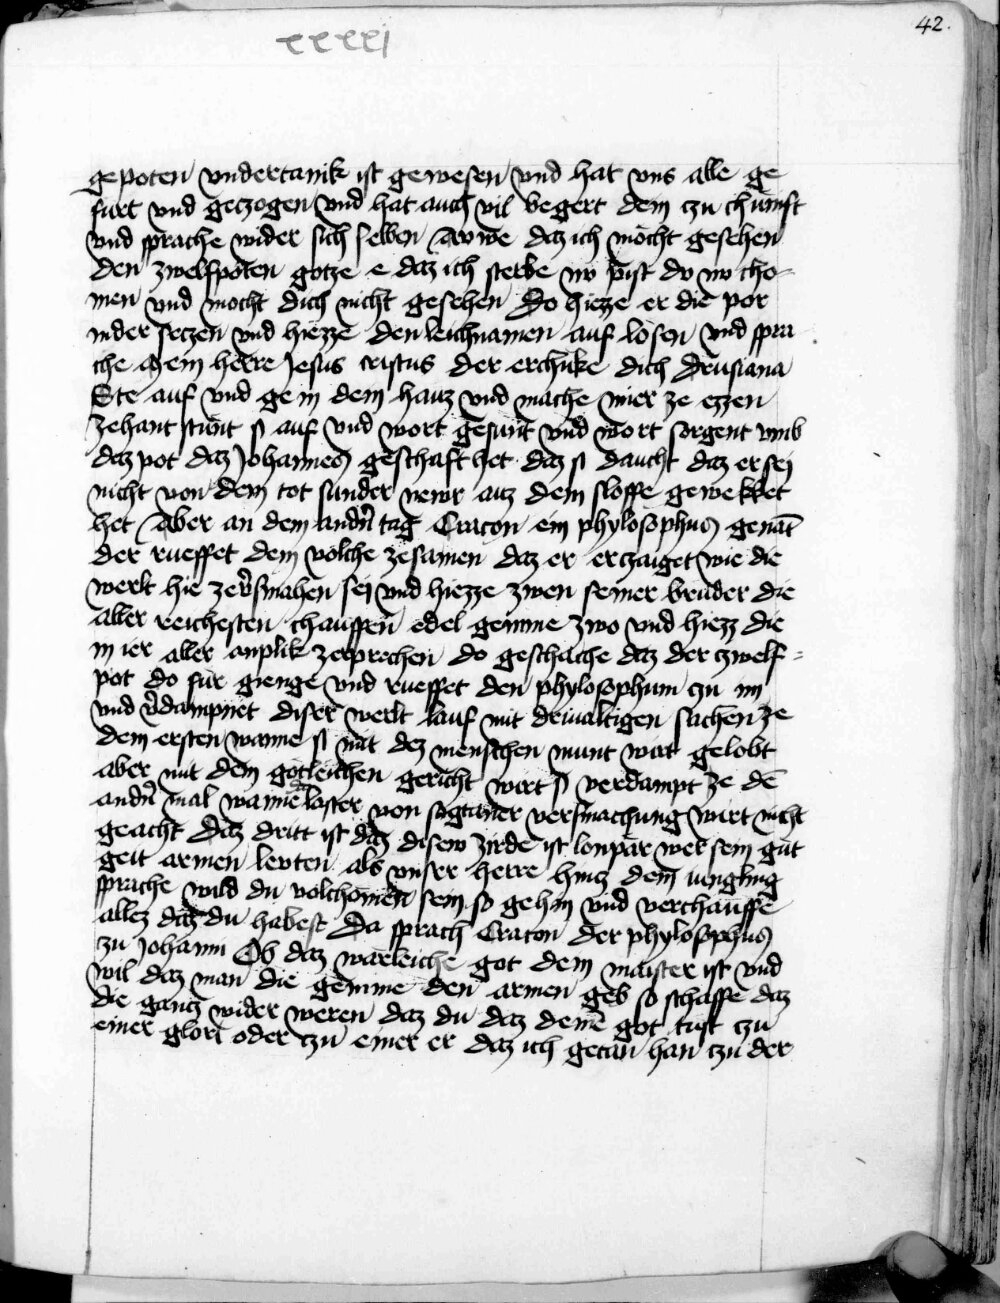 42.
xxxxj
gepoten vndertanik ist gewesen vnd hat vns alle ge
furt vnd geczogen vnd hat auch vil begert dem czu chumst
vnd sprache wider sich selben Auwe daz ich mocht gesehen
den zwelfpoten gotze e daz ich sterbe nv pist dv nv cho-
men vnd mocht dich nicht gesehen Do hiezze er die por
nider seczen vnd hiezze den leichnamen auf losen vnd spra
che Mein herre Jesus cristus der erchuke dich Drusiana
Ste auf vnd ge in dem hauz vnd mache mier ze ezzen
Zehant stunt si auf vnd wort gesunt vnd wort sorgent vmb
daz pot daz Johannes geschaft het daz si daucht daz er sei
nicht von dem tot sunder newr auz dem sloffe gewekket
het Aber an dem andn̄ tag Craton ein phylosophus genāt
der rueffet dem volche zesamen daz er erczaiget wie die
werlt hie zev̄smahen sei vnd hiezze zwen seiner bruder die
aller reichesten chauffen edel gemme zwo vnd hiezz die
in ier aller anplik zerprechen do geschache daz der czwelf=
pot do fur gienge vnd rueffet den phylosophum czu im
vnd v̄dampnet diser werlt lauf mit drivaltigen sachen ze
dem ersten wanne si mit dez menschen munt wirt gelobt
aber mit dem gotleichen gericht wirt si verdampt ze dē
andn̄ mal wanne laster von sogtaner versmachung wirt nicht
geacht Daz dritt ist daz disew zirde ist lonpar wer sein gut
geit armen levten als vnser herre hincz dem iungling
sprache wild du volchomen sein so ge hin vnd verchauffe
allez daz du habest Da sprach Craton der phylosophus
zu Johanni Ob daz warleiche got dem maister ist vnd
wil daz man die gemme den armen geb so schaffe daz
die gancz wider weren daz du daz deinē got tust czu
einer glori oder czu einer er daz ich getan han czu der